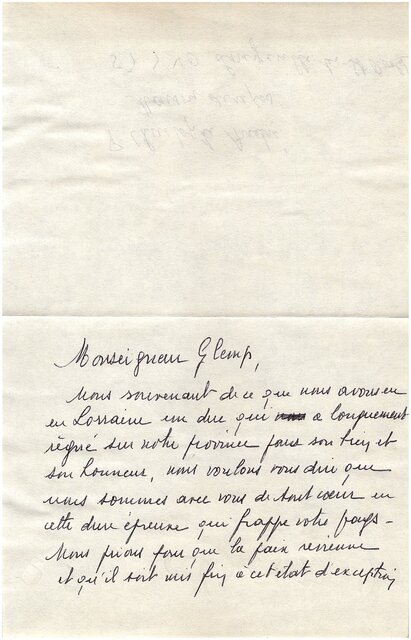 Monseigneur Glemp,
Nous souvenant de ce que nous avons eu
en Lorraine un duc qui a longuement
régné sur notre province pour son bien et
son honneur, nous voulons vous dire que
nous sommes avec vous de tout cœur en
cette dure épreuve qui frappe votre pays -
Nous prions pour que la paix revienne
et qu'il soit mis fin à cet état d'exception